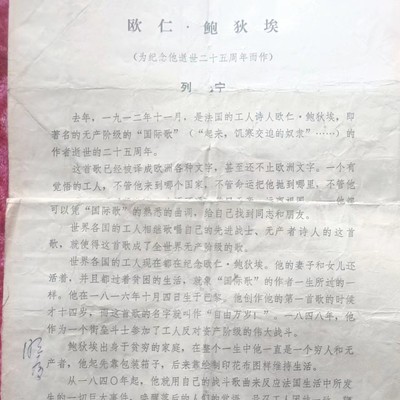 欧仁·鲍狄埃
(为纪念他逝世二十五周年而作)
列 宁
去年,一九一二年十一月,是法国的工人诗人欧仁·鲍狄埃,即
著名的无产阶级的“国际歌”(“起来,饥寒交迫的奴隶”……)的
作者逝世的二十五周年。
这首歌已经被译成欧洲各种文字,甚至还不止欧洲文字。一个有
觉悟的工人,不管他来到哪个国家,不管命运把他抛到哪里,不管他
可以凭“国际歌”的熟悉的曲调,给自己找到同志和朋友。
世界各国的工人相继歌唱自己的先进战士、无产者诗人的这首
歌,就使得这首歌成了全世界无产阶级的歌。
世界各国的工人现在都在纪念欧仁·鲍狄埃。他的妻子和女儿还
活着,并且都过着贫困的生活,就象“国际歌”的作者一生所过的一
样。他在一八一六年十月四日生于巴黎。他创作他的第一首歌的时候
才十四岁,而这首歌的名字就叫作“自由万岁!”。一八四八年,他
作为一个街垒斗士参加了工人反对资产阶级的伟大战斗。
鲍狄埃出身于贫穷的家庭,在整个一生中他一直是一个穷人和无
产者,他起先靠包装箱子,后来靠绘制印花布图样维持生活。
从一八四〇年起,他就用自己的战斗歌曲来反应法国生活中所发
生的一切巨大事件,